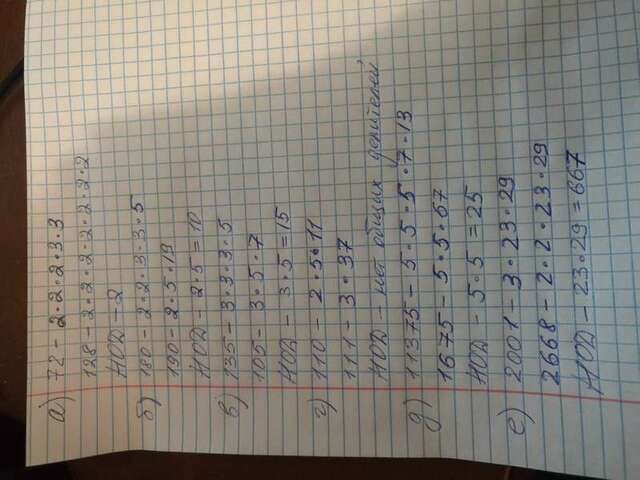 а) 72 - 2·2·2·3·3
128 - 2·2·2·2·2·2·2
НОД - 2
б) 180 - 2·2·3·3·5
190 - 2·5·19
НОД - 2·5 = 10
в) 135 - 3·3·3·5
105 - 3·5·7
НОД - 3·5 = 15
г) 110 - 2·5·11
111 - 3·37
НОД - нет общих делителей
д) 11375 - 5·5·5·7·13
1675 - 5·5·67
НОД - 5·5 = 25
е) 2001 - 3·23·29
2668 - 2·2·23·29
НОД - 23·29 = 667